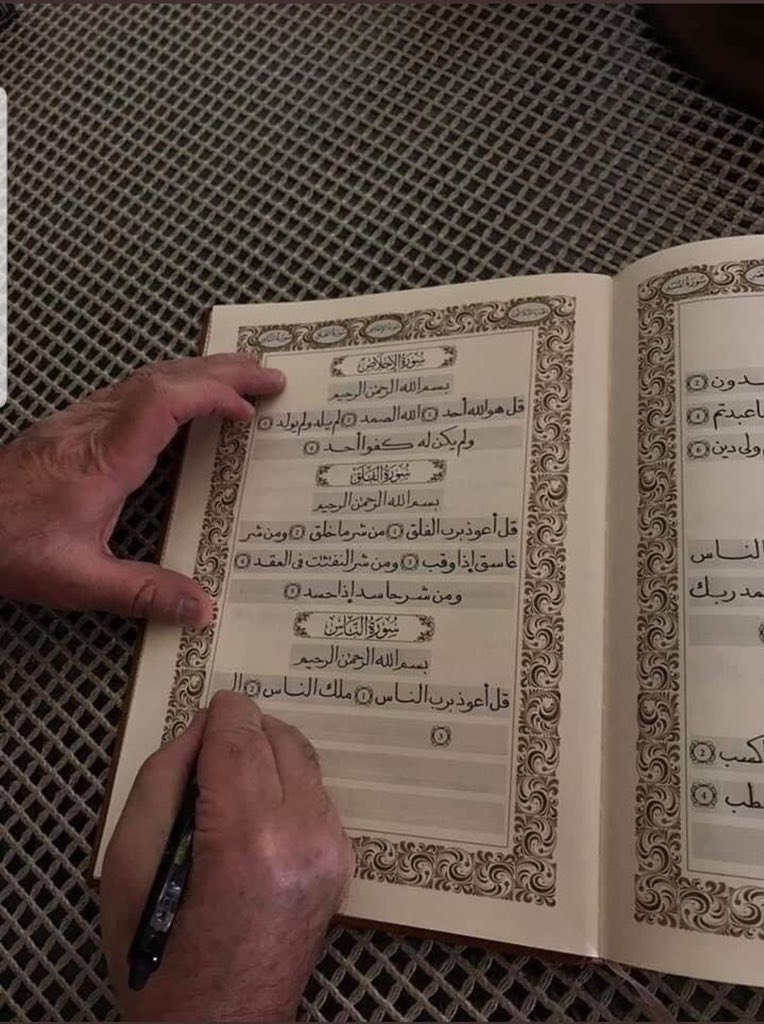 سورة المسد
ـدون ②
ـا عبدتم ④
ولى دين ⑥
الناس
ـمد ربك
كسب ②
ـطب ④
سورة الإخلاص سورة الفلق سورة الناس
سورة الإخلاص
بسم الله الرحمن الرحيم
قل هو الله أحد ① الله الصمد ② لم يلد ولم يولد ③
ولم يكن له كفوا أحد ④
سورة الفلق
بسم الله الرحمن الرحيم
قل أعوذ برب الفلق ① من شر ما خلق ② ومن شر
غاسق إذا وقب ③ ومن شر النفثت فى العقد ④
ومن شر حاسد إذا حسد ⑤
سورة الناس
بسم الله الرحمن الرحيم
قل أعوذ برب الناس ① ملك الناس ② ال
③